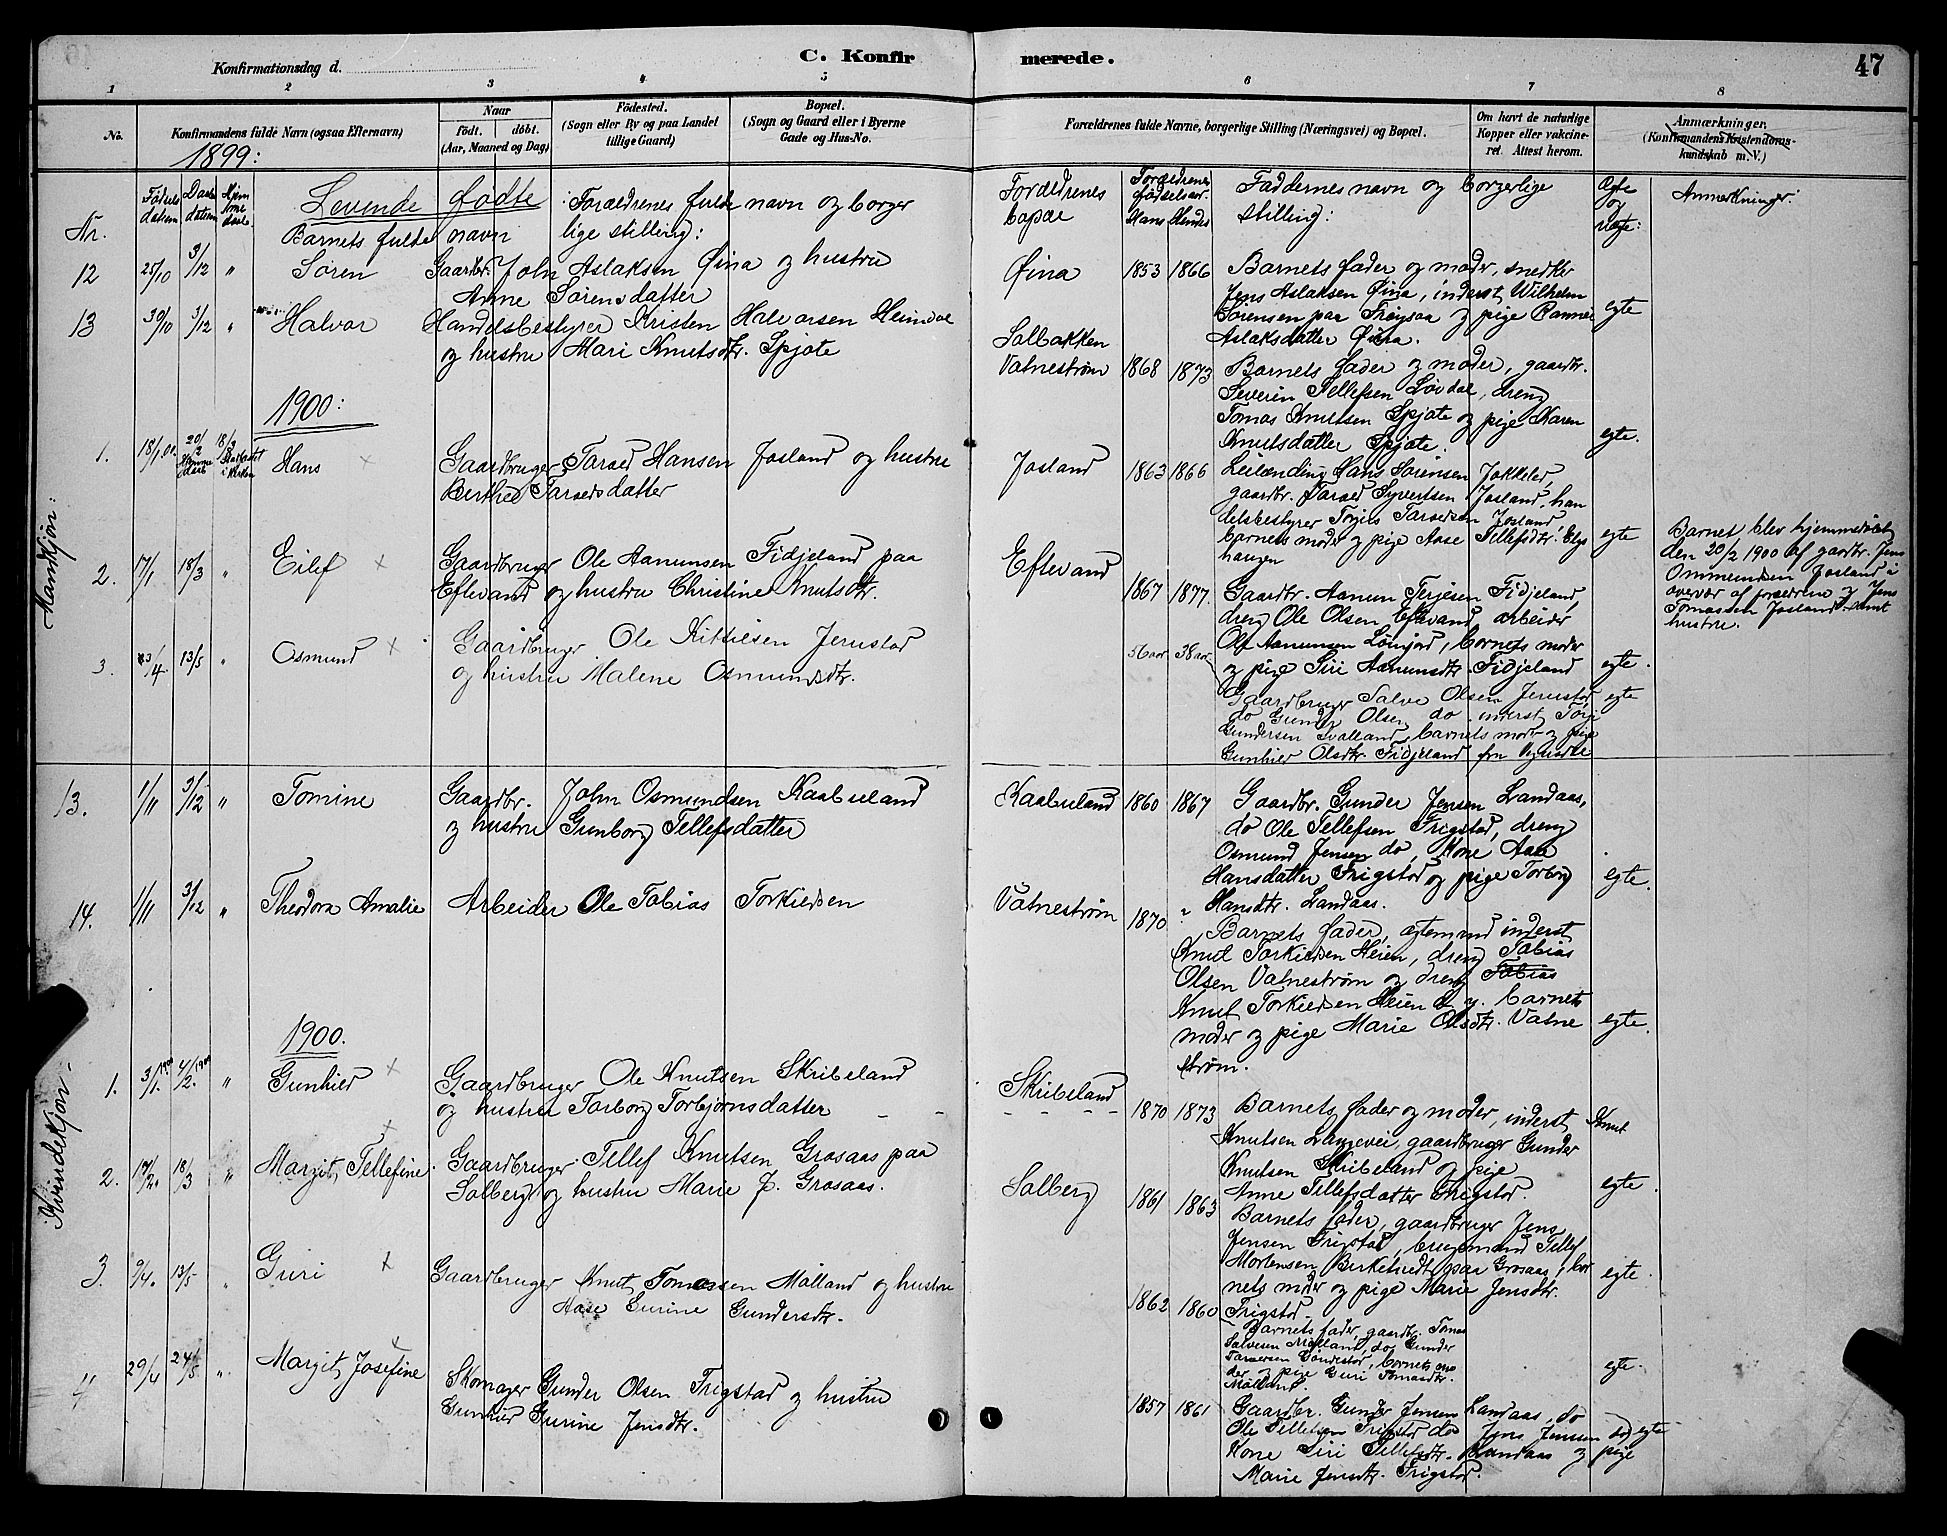 C. Konfirmerede.
47
Konfirmationsdag d.
1 2 3 4 5 6 7 8
No.
Konfirmandens fulde Navn (ogsaa Efternavn)
Naar
født. døbt.
(Aar, Maaned og Dag)
Fødested.
(Sogn eller By og paa Landet
tillige Gaard)
Bopæl.
(Sogn og Gaard eller i Byerne
Gade og Hus-No.
Forældrenes fulde Navne, borgerlige Stilling (Næringsvei) og Bopæl.
Om havt de naturlige
Kopper eller vakcine-
ret. Attest herom.
Anmærkninger.
(Konfirmandens Kristendoms-
kundskab m. V.)
1899:
Levende fødte
Nr.
Fødsels
datum
Daabs
datum
Hjem
me
daab.
Barnets fulde navn
Forældrenes fulde navn og borger
lige stilling:
Forældrenes
bopæl
Forældrenes
fødselsaar.
Hans Hendes
Faddernes navn og borgerlige
stilling:
Ægte
og
uægte:
Anmerkninger:
Mandkjøn:
12 25/10 3/12 " Søren
Gaardbr. John Aslaksen Øina og hustru
Anne Sørensdatter
Øina 1853 1866
Barnets fader og moder, snedker
Jens Aslaksen Øina, inderst Wilhelm
Sørensen paa Frøysaa og pige
Aslaksdatter Øina.
egte
13 30/10 3/12 " Halvor
Handelsbestyrer Kristen Halvorsen Heimdal
og hustru Mari Knutsdtr. Spjote
Solbakken
Vatnestrøm 1868 1873
Barnets fader og moder, gaardbr.
Severin Tellefsen Løvdal, dreng
Tomas Knutsen Spjote og pige Karen
Knutsdatter Spjote.
egte.
1900:
1. 18/1 00. 20/2 Hjemme
døbt 18/3 Stadfæstet
i kirken
Hans
Gaardbruger Tarald Hansen Josland og hustru
Berthe Taraldsdatter
Josland 1863 1866
Leilænding Hans Sørensen Jokkeler,
gaardbr. Tarald Syvertsen Josland, han
delsbestyrer Torjus Taraldsen Josland,
barnets moder og pige Aase Tellefsdtr. Elgs
haugen
egte
Barnet blev hjemmedøbt
den 20/2 1900 af gardbr. Jens
Ommundsen Josland i
overvær af forældrene og Jens
Tomassen Josland samt
hustru.
2. 17/1 18/3 " Eilef
Gaardbruger Ole Aanunsen Fidjeland paa
Eftevand og hustru Christine Knutsdtr.
Eftevand
1867 1877.
Gaardbr. Aanun Terjesen Fidjeland,
dreng Ole Olsen Eftevand, arbeider
Ole Aanunsen Lønjord, barnets moder
og pige Siri Aanunsdtr. Fidjeland
egte.
3. 23/4. 13/5 " Osmund
Gaardbruger Ole Kittilsen Jerustad
og hustru Malene Osmundsdtr.
56 aar 38 aar
Gaardbruger Salve Olsen Jerustad
do Gunder Olsen do inderst Torje
Gundersen Svalland, barnets mor og pige
Gunhild Olsdtr. Fidjeland fra Vegusdal
egte
13. 1/11 3/12 " Tomine
Gaardbr. John Osmundsen Kaabuland
og hustru Gunborg Tellefsdatter
Kaabuland 1860 1867
Gaardbr. Gunder Jensen Landaas,
do Ole Tellefsen Frigstad, dreng
Osmund Jensen do, Kone Aasa
Hansdatter Frigstad og pige Torborg
Hansdtr. Landaas.
egte.
14. 1/11 3/12 " Theodora Amalie
Arbeider Ole Tobias Torkildsen
Vatnestrøm 1870 ?
Barnets fader, egtemand inderst
Knud Torkildsen Heien, dreng Tobias
Olsen Vatnestrøm og dreng Tobias
Knut Torkildsen Heien d. y. barnets
moder og pige Marie Olsdtr. Vatne
strøm.
egte.
Kvindekjøn:
1900.
1. 3/1. 1900 4/2. 1900 " Gunhild
Gaardbruger Ole Knutsen Skribeland
og hustru Torborg Torbjørnsdatter
Skribeland
1870 1873
Barnets fader og moder, inderst Knut
Knutsen Langevei, gaardbruger Gunder
Knutsen Skribeland og pige
Anne Tellefsdatter Frigstad.
egte.
2. 17/2. 18/3 " Margit Tellefine
Gaardbruger Tellef Knutsen Grosaas paa
Solberg og hustru Marie J. Grosaas.
Solberg 1861 1863
Barnets fader, gaardbruger Jens
Jensen Frigstad, brugsmand Tellef
Mortensen Birketvedt paa Grosaas, bar
nets moder og pige Marie Jensdtr.
Frigstad
egte.
3. 9/4. 13/5 " Guri
Gaardbruger Knut Tomassen Mølland og hustru
Aase Gurine Gundersdtr.
1862 1860
Barnets fader, gaardbr. Tomas
Salvesen Mølland, do Gunder
Taraldsen, barnets mo
der og pige Guri Tomasdtr.
Mølland.
egte.
4 29/4 24/5 " Margit Josefine
Skomager Gunder Olsen Frigstad og hustru
Gunhild Gurine Jensdtr.
1857 1861
Gaardbr. Gunder Jensen Landaas, do
Ole Tellefsen Frigstad do Jens Jensen do,
Kone Siri Tellefsdtr. Landaas og pige
Marie Jensdtr. Frigstad.
egte